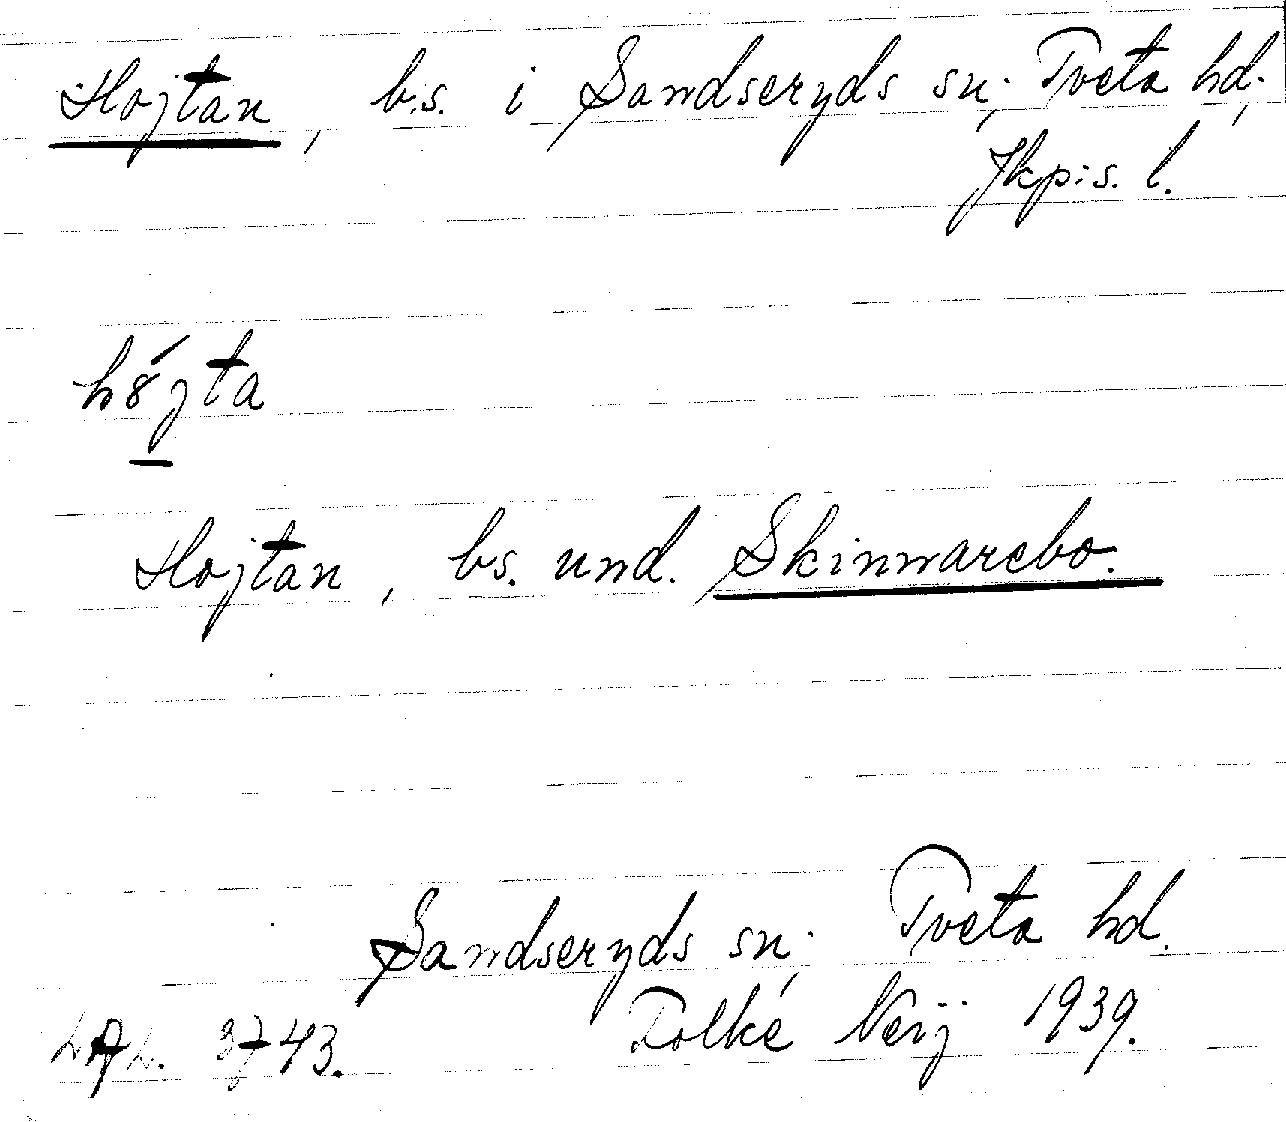 Hojtan, bs. i Sandseryds sn; Tveta hd;
Jkpis. l.
hójta
Hojtan, bs. und. Skinnarebo.
Sandseryds sn; Tveta hd.
Folke Neij 1939.
LAL. 3743.